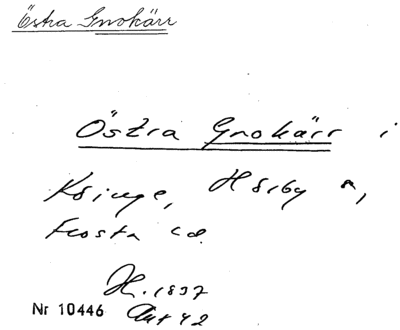 Östra Gnokärr
Östra Gnokärr i
Ksinge, Hsiby n,
Frosta cd.
H. 1837
Nr 10446 Akt 42